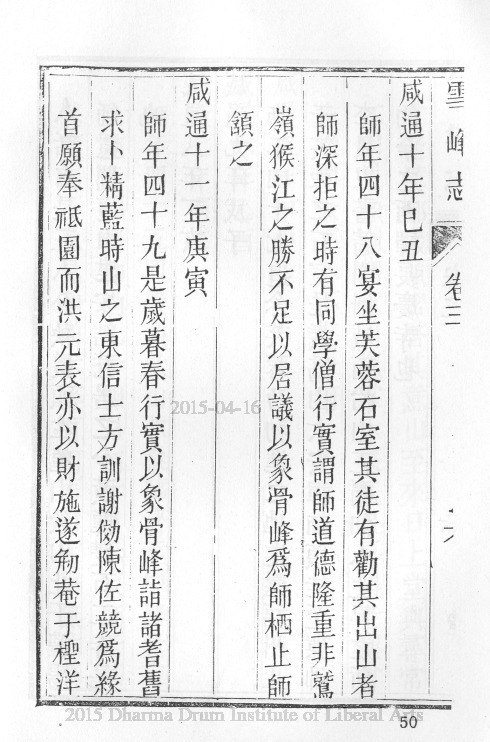 雪峰志 卷三 六
咸通十年巳丑
師年四十八宴坐芙蓉石室其徒有勸其出山者
師深拒之時有同學僧行實謂師道德隆重非鷲
嶺猴江之勝不足以居議以象骨峰爲師栖止師
頷之
咸通十一年庚寅
師年四十九是歲暮春行實以象骨峰詣諸耆舊
求卜精藍時山之東信士方訓謝效陳佐競爲緣
首願奉祗園而洪元表亦以財施遂刱菴于檉洋
2015-04-16
2015 Dharma Drum Institute of Liberal Arts
50